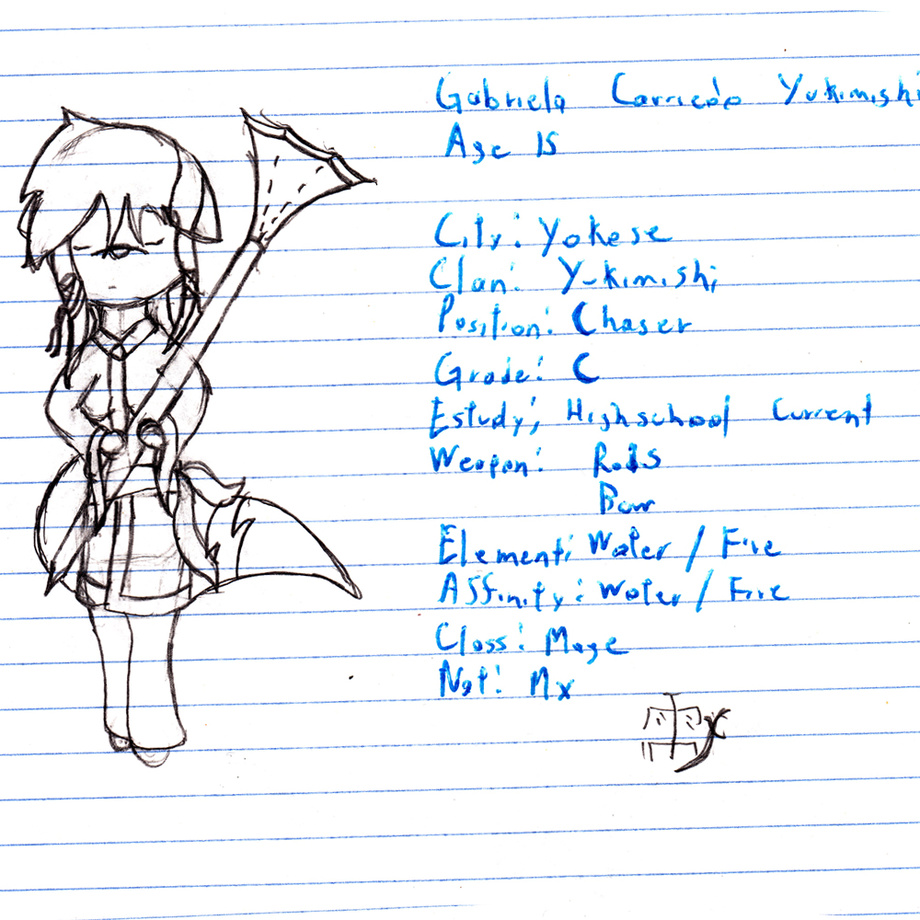 Gabriela Carricdo Yukimishi
Age 15
City: Yokese
Clan: Yukimishi
Position: Chaser
Grade: C
Estudy; Highschool Current
Weapon: Rods
Bow
Element: Water / Fire
Affinity: Water / Fire
Class: Mage
Nat: Mx